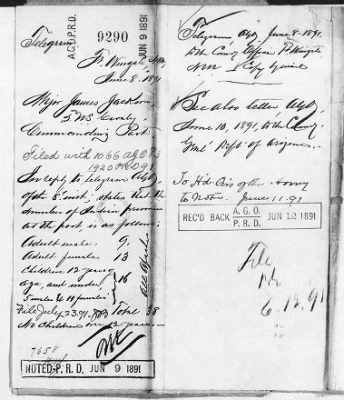 A.G.O.P.R.D.
9290
JUN 9 1891
Telegram
Ft. Wingate, N.M.,
June 8, 1891
Major James Jackson,
2" U.S. Cavalry,
Commanding Post.
Filed with 1066 A.G.O.
In reply to telegram A.G.O.
of the 8" inst., states that the
number of Indian prisoners
at the post, is as follows:
Adult male. 9.
Adult female. 13
Children 12 years of
age, and under, 16
5 males & 11 females
All Apache
File July 23.91. Total 38
No children over 12 years
7658
NOTED-P. R. D. JUN 9 1891
Telegram A.G.O. June 8-1891.
to the Com'dg Officer Ft Wingate
N.M. 1 Copy
See also letter A.G.O.
June 10, 1891, to the Com'dg
Gen'l Dep't of Arizona.
To H'd. Qrs of the Army
to Note. June 11.91
REC'D BACK A. G. O. P. R. D. JUN 12 1891
File
6.12.91